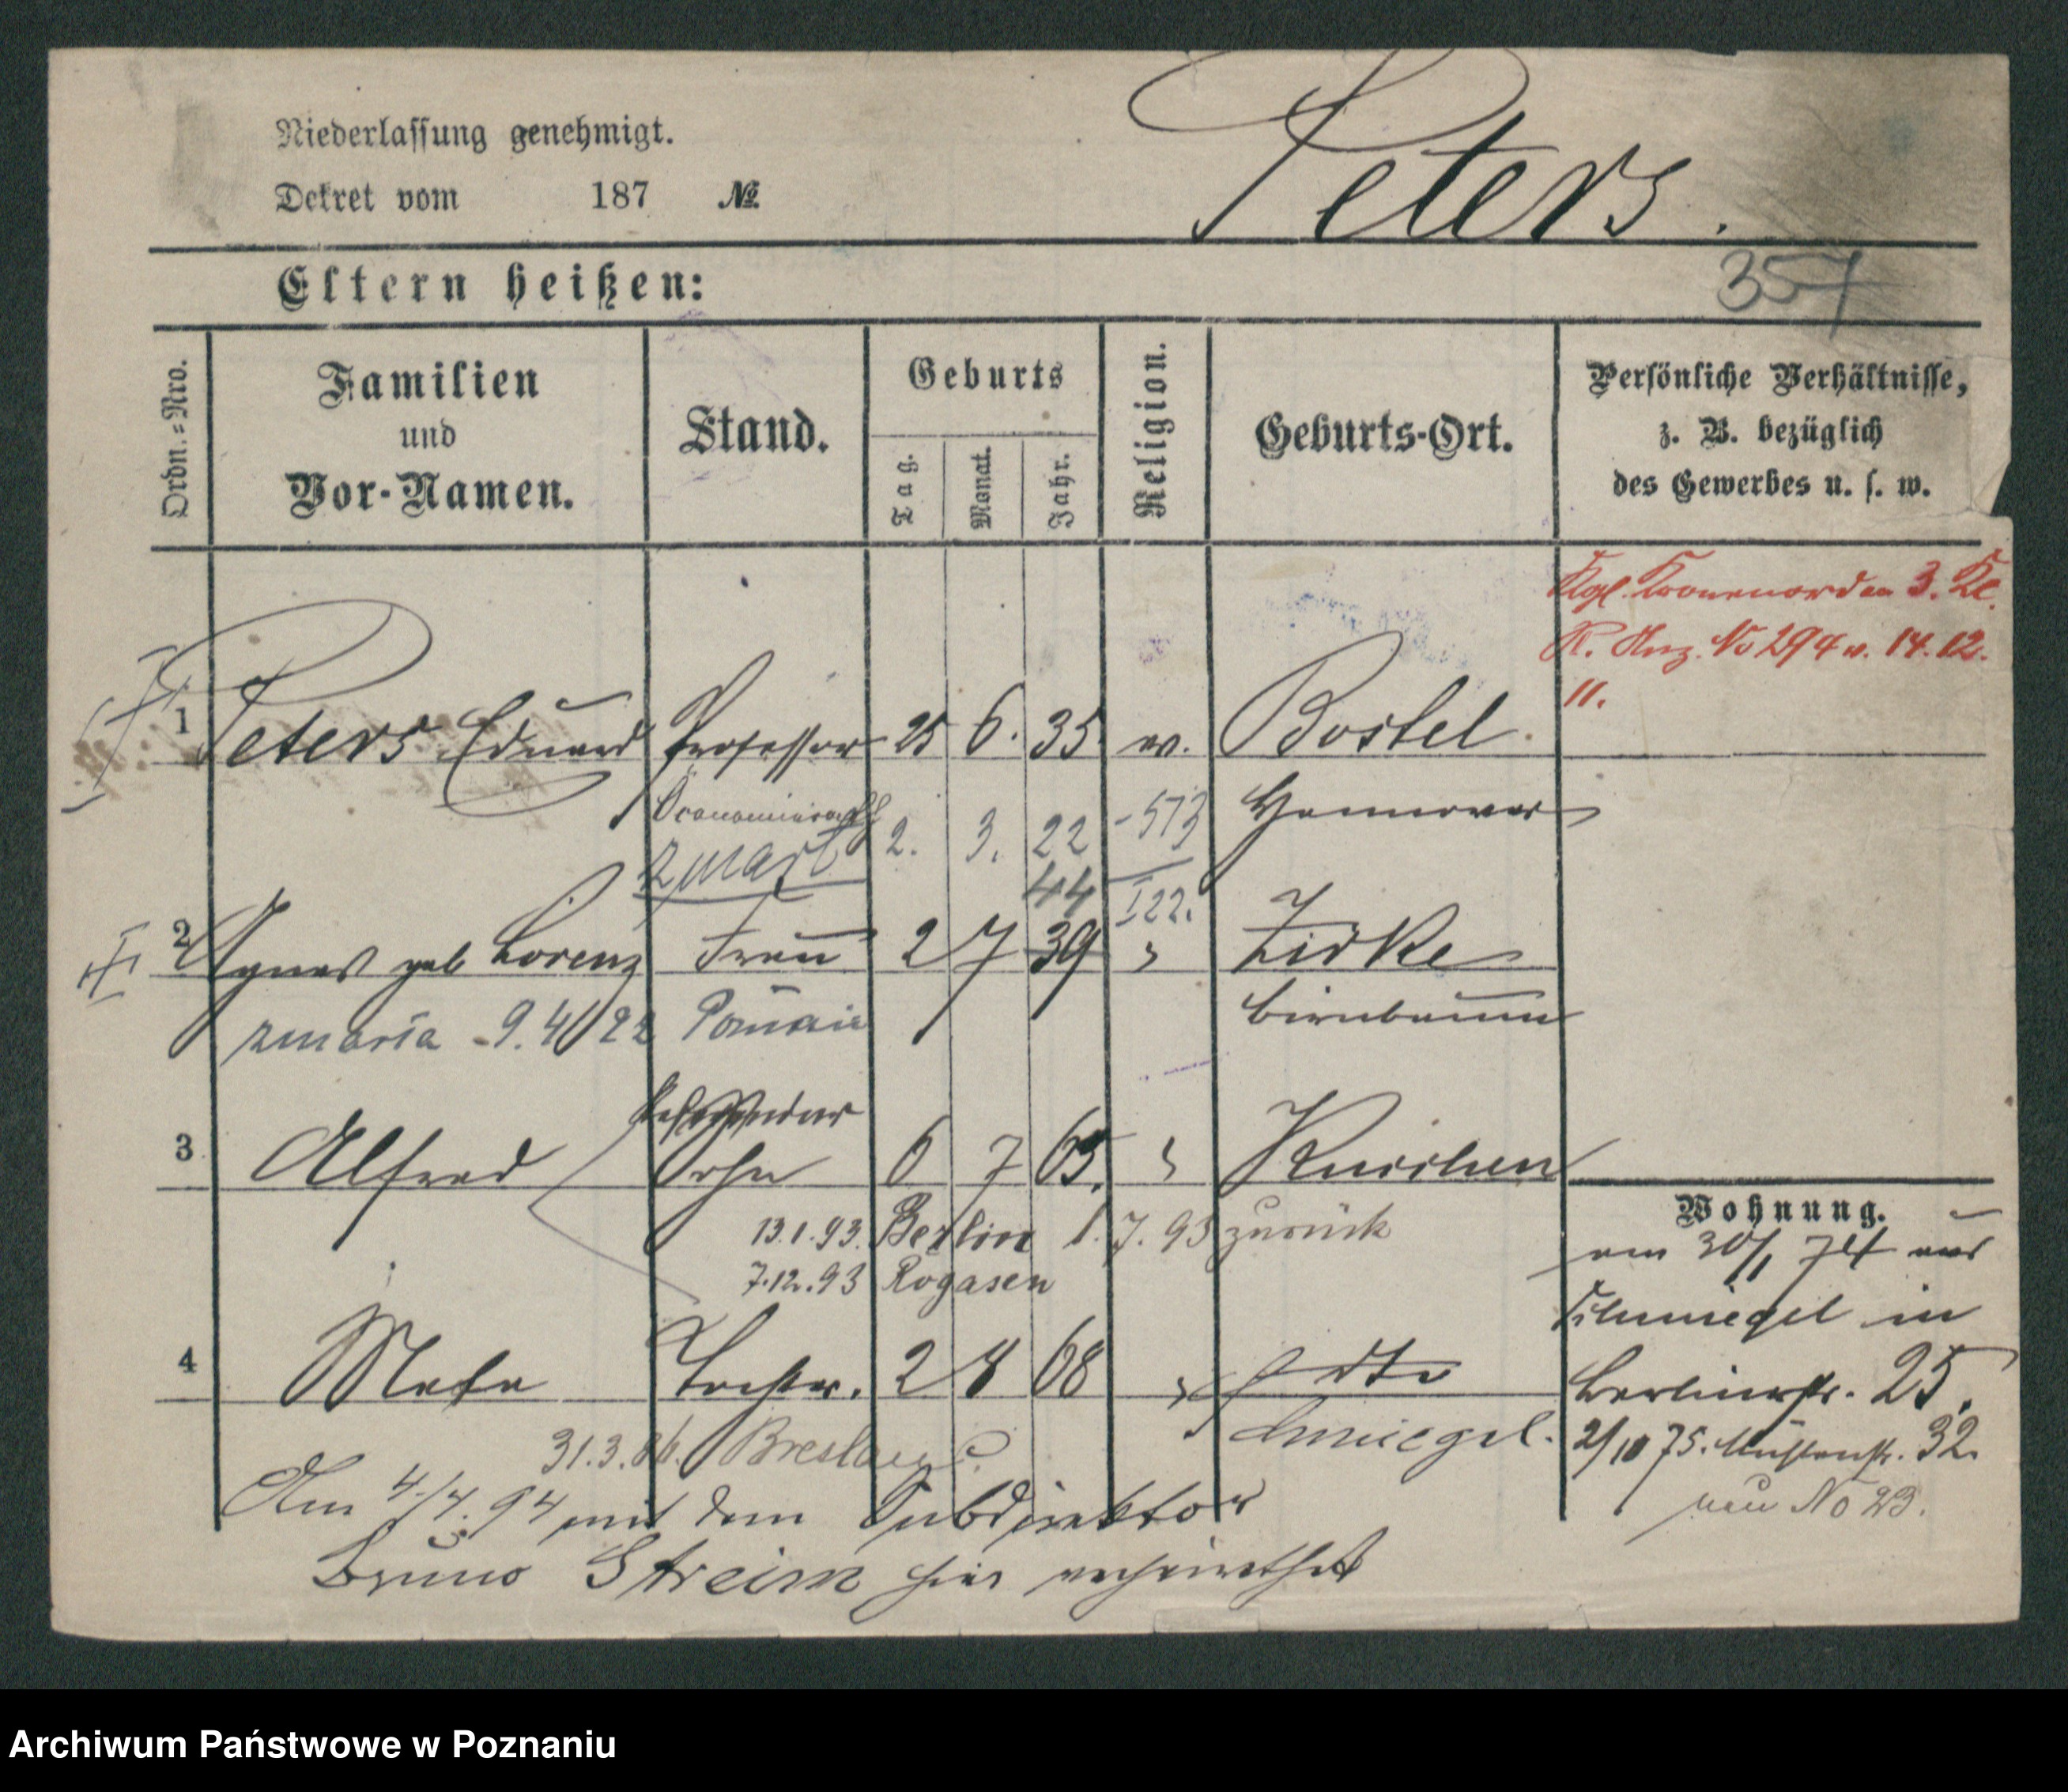 Niederlassung genehmigt.
Dekret vom 187 №
Peters.
Eltern heißen:
357
Ordn.=Nro.
Familien
und
Vor-Namen.
Stand.
Geburts
Tag.
Monat.
Jahr.
Religion.
Geburts-Ort.
Persönliche Verhältnisse,
z. B. bezüglich
des Gewerbes u. s. w.
Kgl. Kronenorden 3. Kl.
R. Anz. No 294 v. 14. 12.
11.
1 Peters Eduard Professor 25 6. 35 ev. Bostel
Oconomierath 2. 3. 22 -573 Hannover
zmarł
44 I22.
2 Agnes geb Lorenz Frau 2 7 39 " Zirke
zmarła - 9.4.22 Poznań Birnbaum
Referendar
3 Alfred Sohn 6 7 65. " Kuschen
13.1.93. Berlin 1.7.93 zurück
7.12.93 Rogasen
4 Meta Tochter. 2 8 68 " dto
Schmiegel.
31.3.86. Breslau
Am 4./4. 94 mit dem Subdirektor
Bruno Streim hier verheirathet
Wohnung.
am 30/1 74 aus
Schmiegel in
Berlinerstr. 25.
2/10 75. Mühlenstr. 32.
neu No 23.
Archiwum Państwowe w Poznaniu